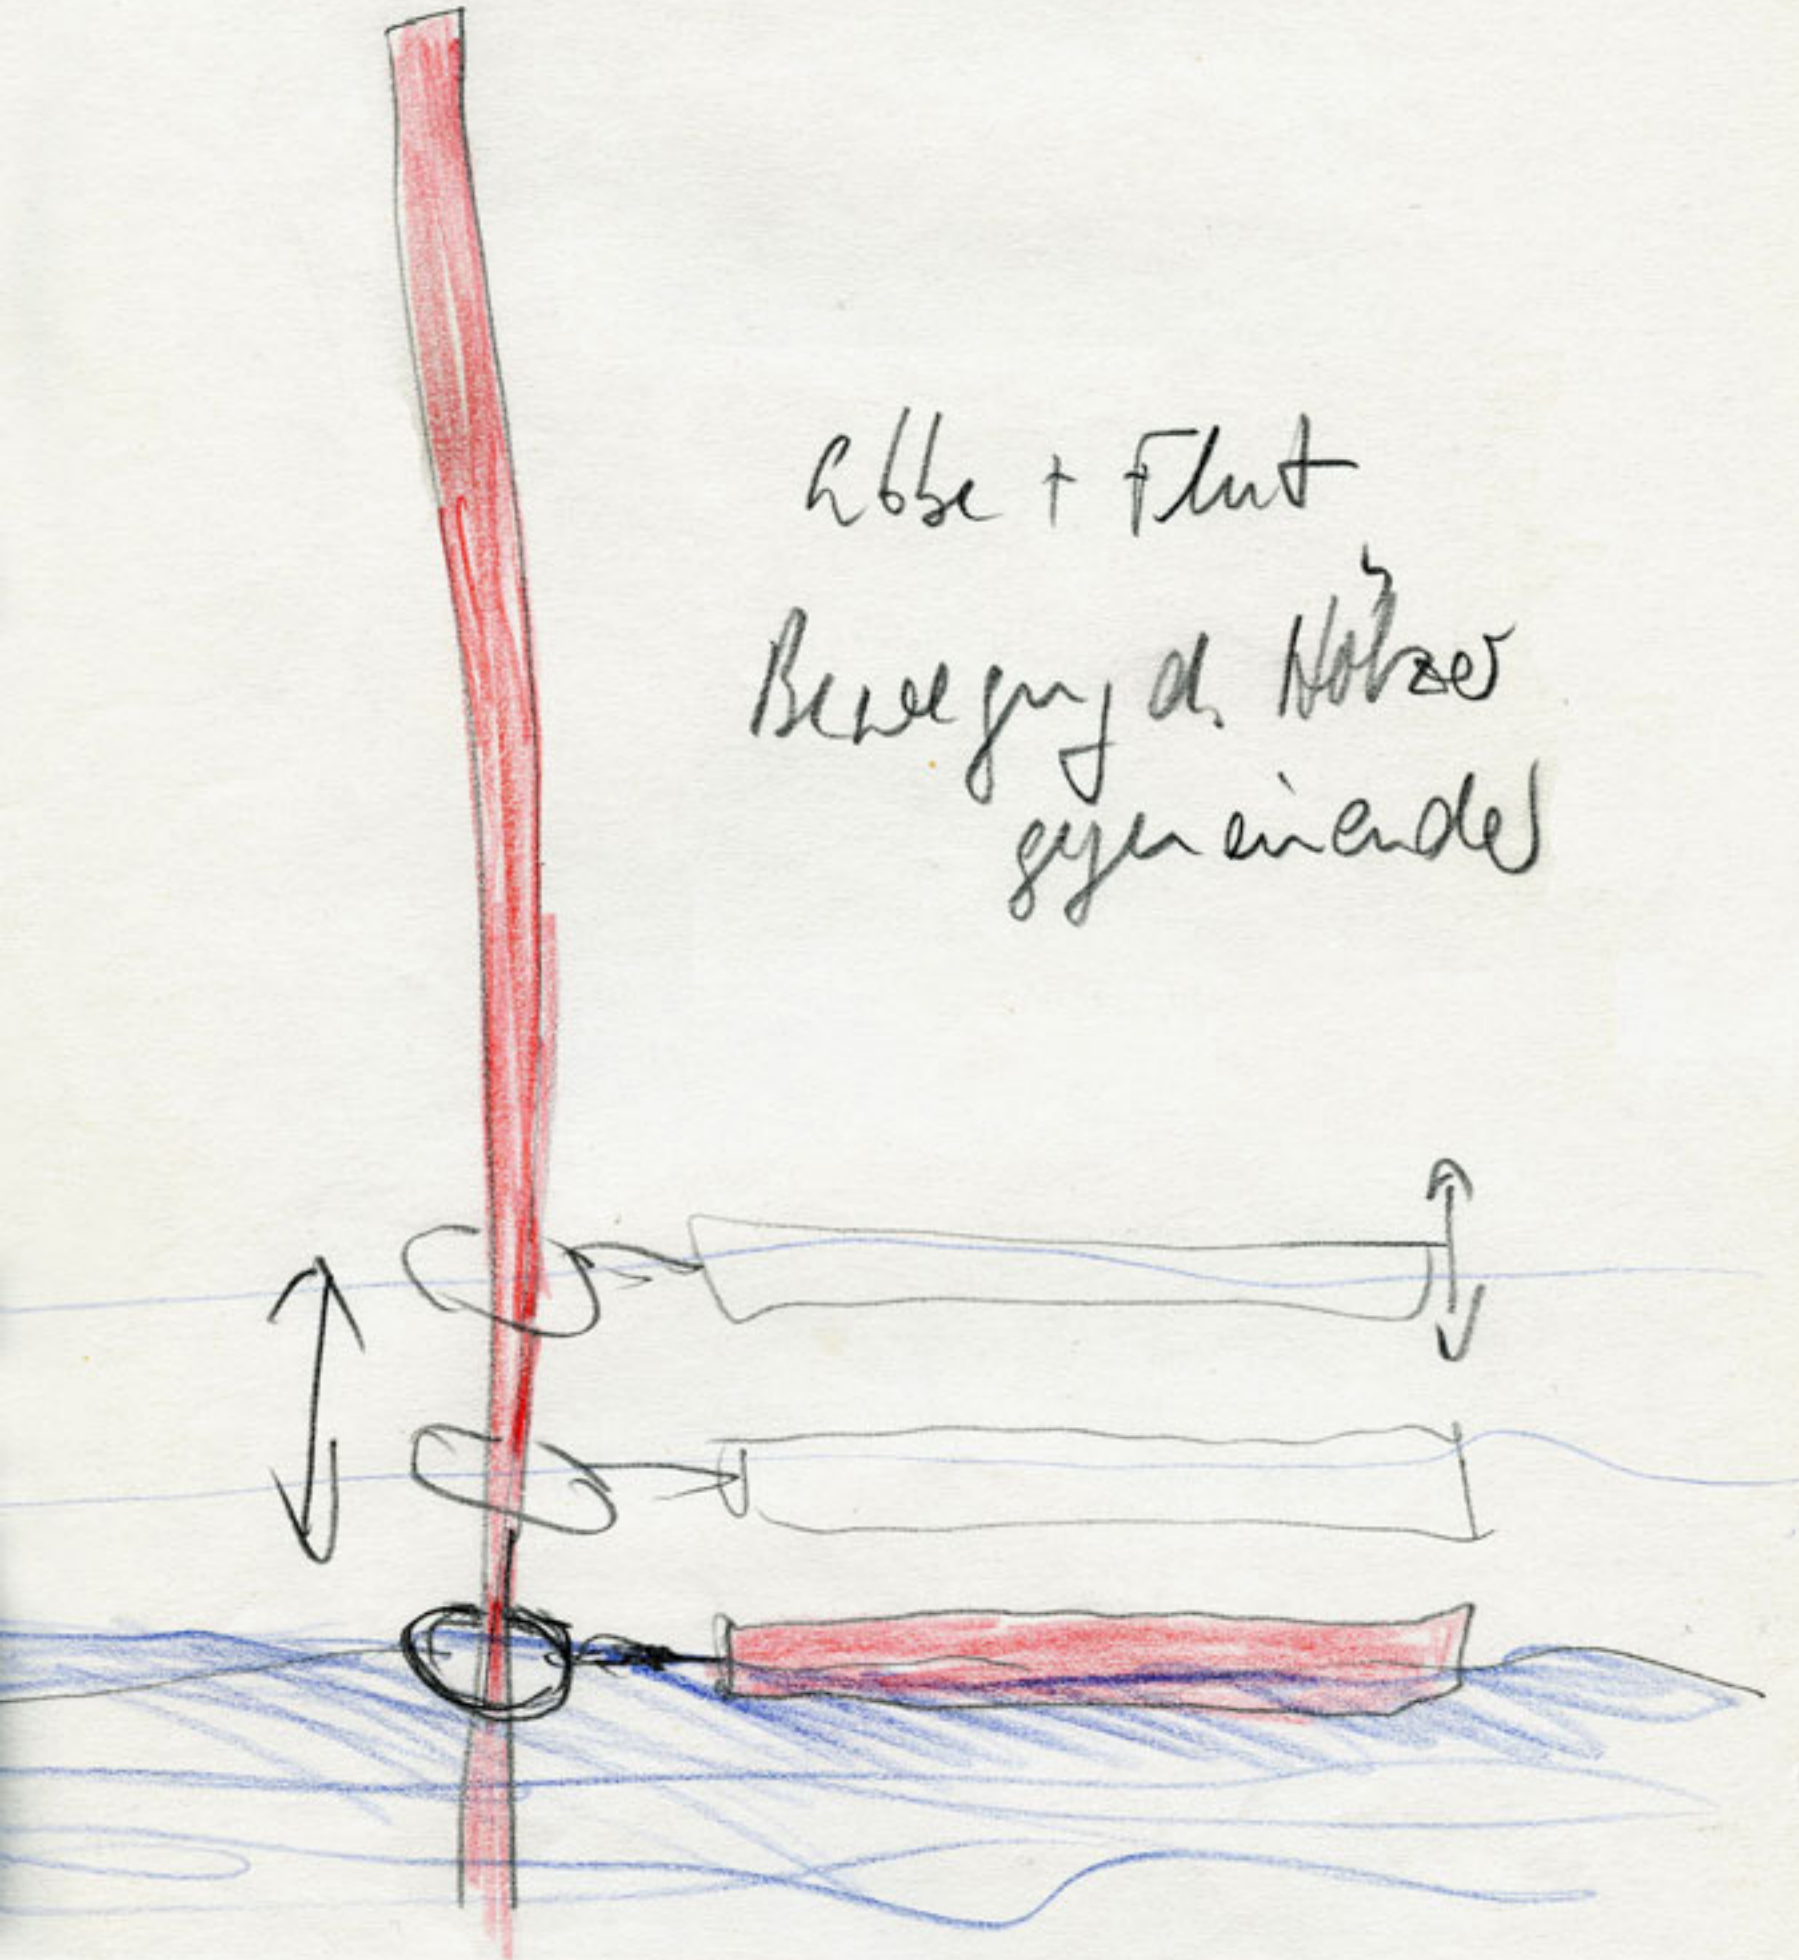 Ebbe + Flut
Bewegung d. Hölzer
gegeneinander